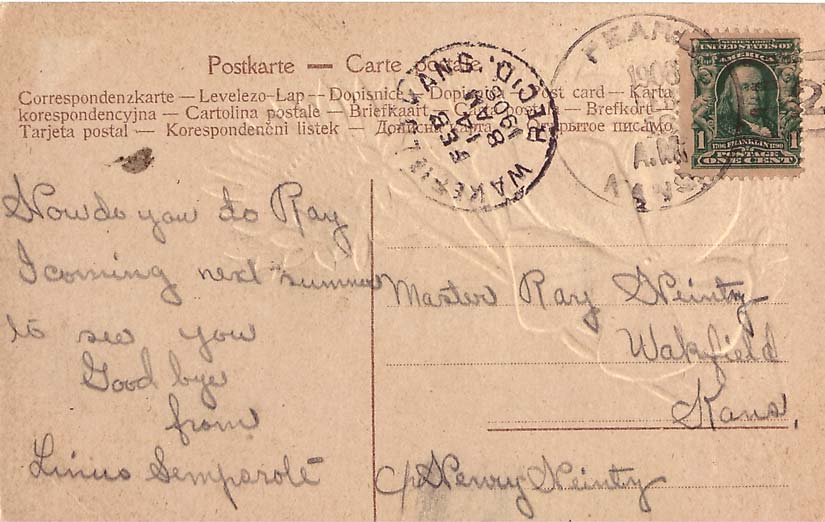 Postkarte — Carte postale
Correspondenzkarte — Levelezo-Lap — Dopisnice — Dopisnica — Post card — Karta
korespondencyjna — Cartolina postale — Briefkaart — Carta postala — Brefkort —
Tarjeta postal — Korespondenčni listek — Дописная карта — Открытое письмо
WAKEFIELD KANS. REC'D.
FEB
14
AM
1908
1908
A.M.
KANS.
SERIES 1902
UNITED STATES OF
AMERICA
1706 FRANKLIN 1790
1 POSTAGE 1
ONE CENT
2
How do you do Ray
I coming next summer
to see you
Good bye
from
Linus
Master Ray Heinty
Wakfield
Kans,
c/o Henry Heinty